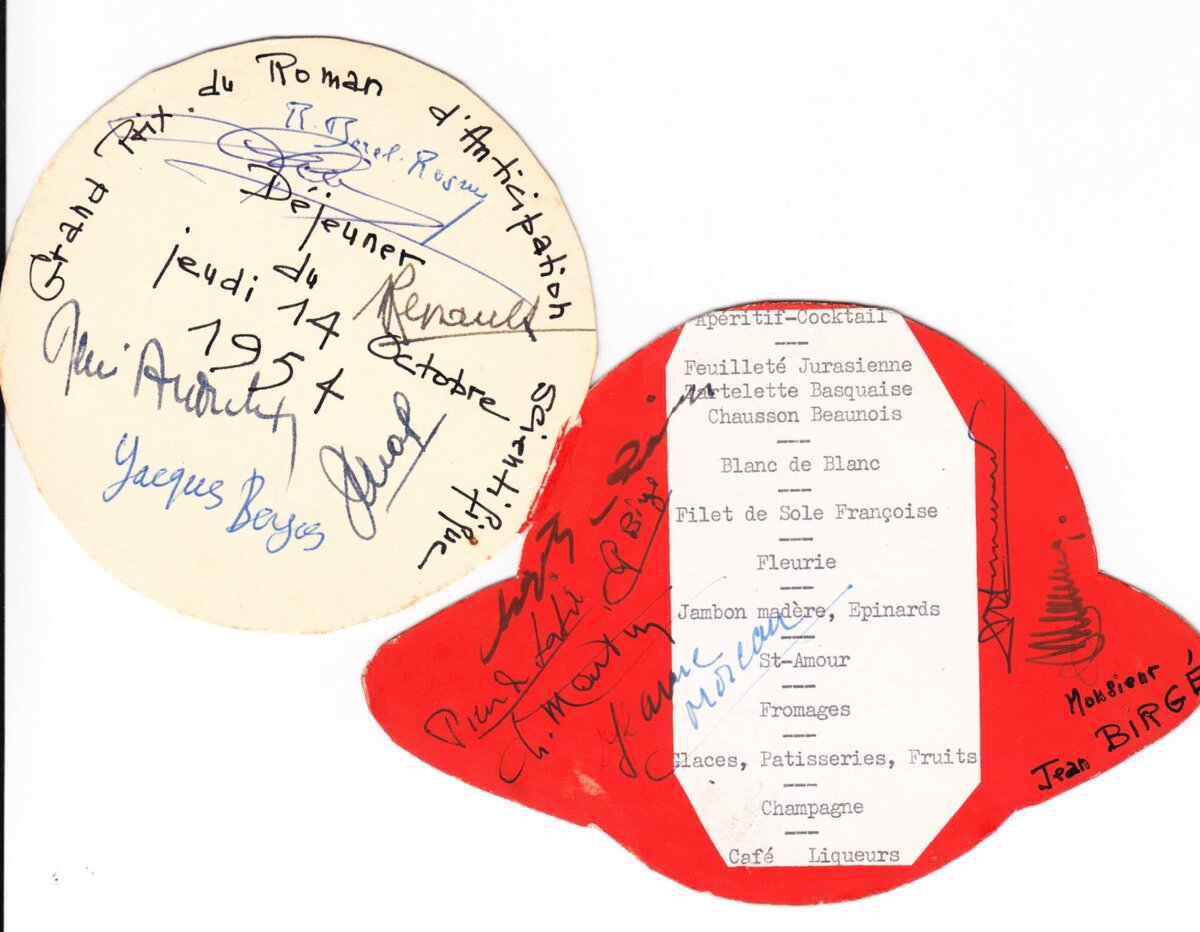 Grand Prix du Roman d'Anticipation Scientifique
Déjeuner
du
jeudi 14 Octobre
1954
Renault
Jacques Bergés
Apéritif-Cocktail
Feuilleté Jurasienne
Tartelette Basquaise
Chausson Beaunois
Blanc de Blanc
Filet de Sole Françoise
Fleurie
Jambon madère, Epinards
St-Amour
Fromages
Glaces, Patisseries, Fruits
Champagne
Café Liqueurs
Ch. Martin
Jeanne
Moreau
Monsieur
Jean BIRGÉ